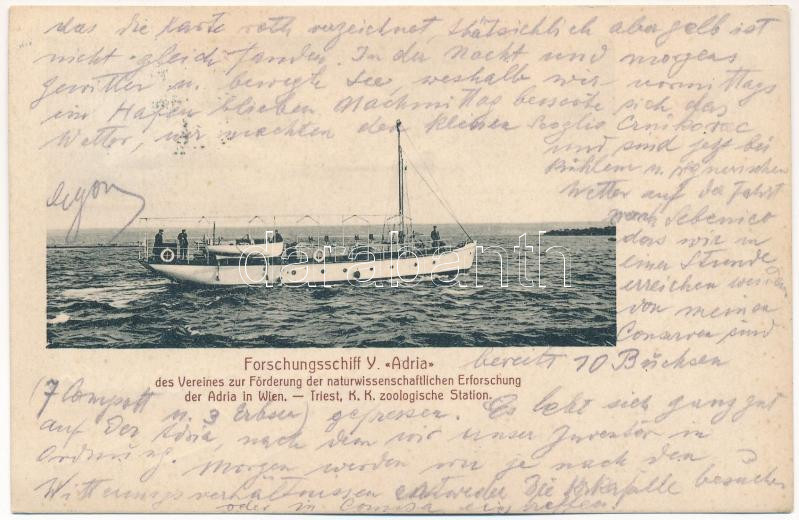 das die Karte roth verzeichnet, thatsächlich aber gelb ist
nicht gleich fanden. In der Nacht und morgens
Gewitter u. bewegte See, weshalb wir vormittags
im Hafen blieben Nachmittag besserte sich das
Wetter, wir machten den kleinen Scoglio Crnikovac
und sind jetzt bei
kühlem u. regnerischen
Wetter auf der Fahrt
nach Sebenico
das wir in
einer Stunde
erreichen werden
von meinen
Conserven sind
bereits 10 Büchsen
darabanth
Forschungsschiff Y. «Adria»
des Vereines zur Förderung der naturwissenschaftlichen Erforschung
der Adria in Wien. — Triest, K. K. zoologische Station.
(7 Compott u. 3 Erbsen) gefressen. Es lebt sich ganz gut
auf der Adria, nach dem wir unser Inventar in
Ordnung. Morgen werden wir je nach den
Witterungsverhältnissen entweder die Krkafälle besuchen
oder in Comisa eintreffen.